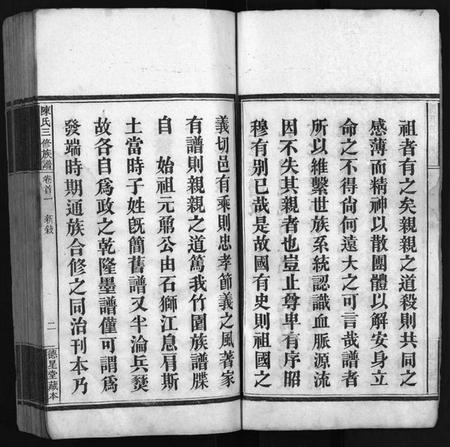 祖者有之矣親親之道殺則共同之
感薄而精神以散團體以解安身立
命之不得尙何遠大之可言哉譜者
所以維繫世族系統認識血脈源流
因不失其親者也豈止尊卑有序昭
穆有別已哉是故國有史則祖國之
義切邑有乘則忠孝節義之風著家
有譜則親親之道篤我竹園族譜牒
自　始祖元鼐公由石獅江息肩斯
土當時子姓旣簡舊譜又半淪兵燹
故各自爲政之乾隆墨譜僅可謂爲
發端時期通族合修之同治刊本乃
陳氏三修族譜
卷首一
新敍
二
德星堂藏本